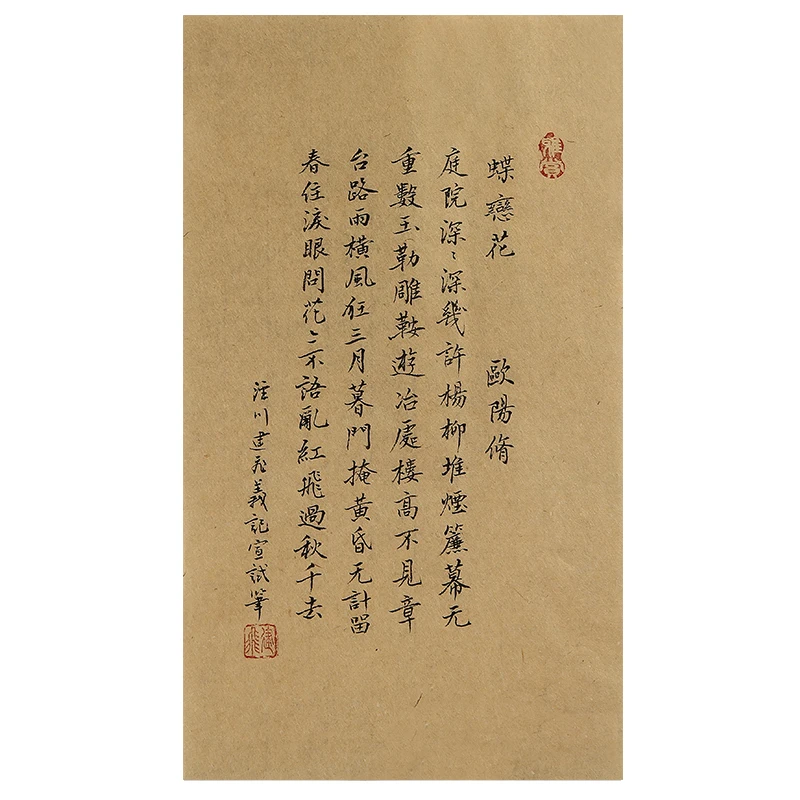 蝶戀花 歐陽脩
庭院深〻深幾許楊柳堆煙簾幕无
重數玉勒雕鞍遊冶處楼高不見章
台路雨橫風狂三月暮門掩黃昏无計留
春住淚眼問花〻不語亂紅飛過秋千去
涇川建飛義記宣試筆
建飛